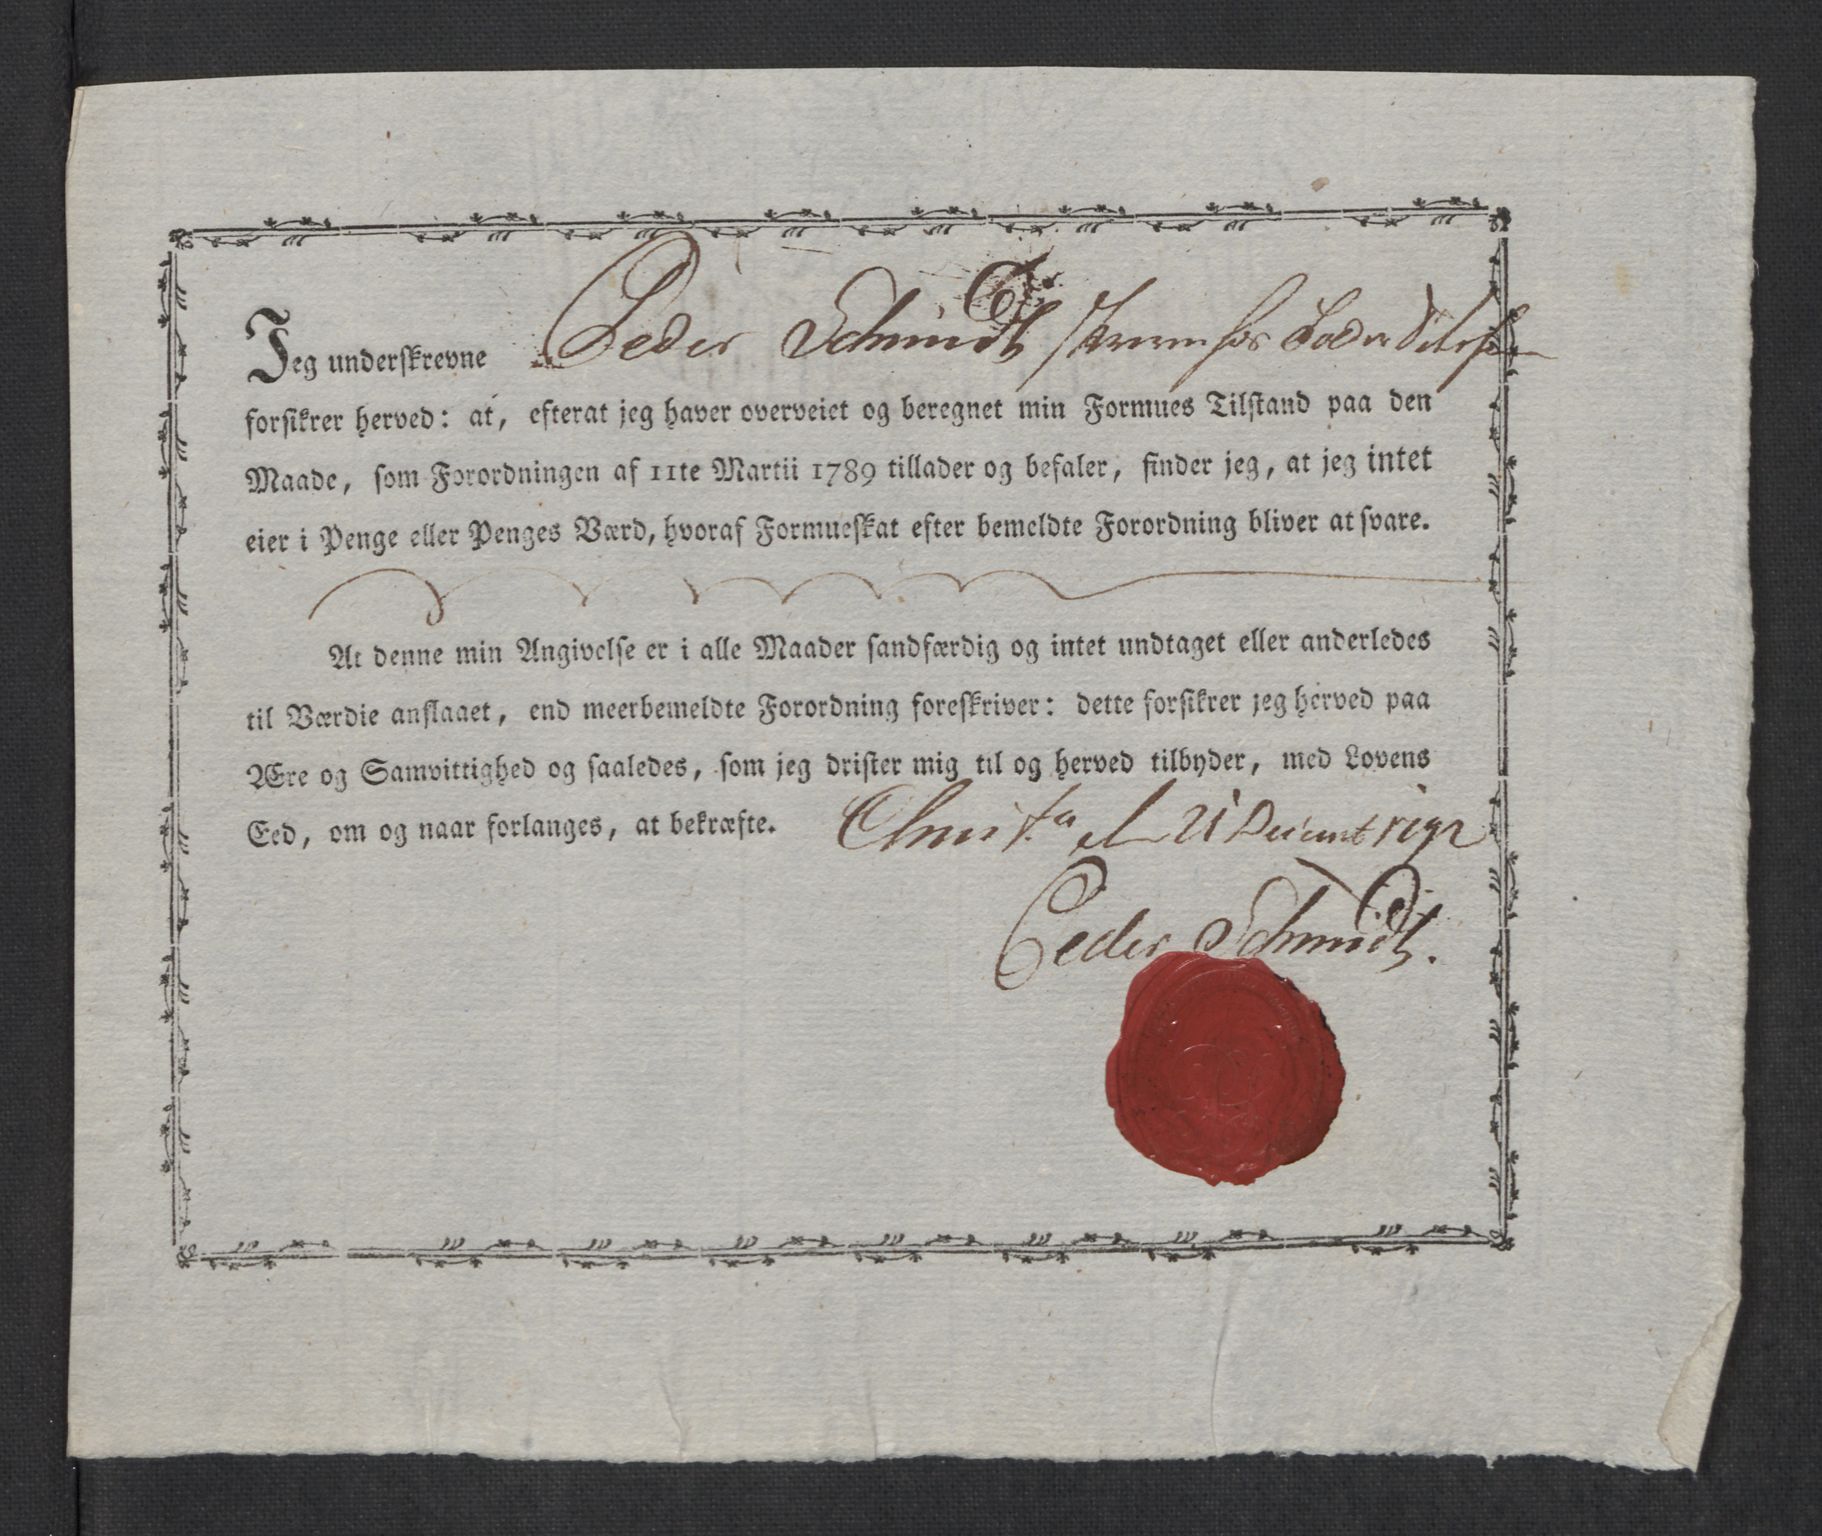 Jeg underskrevne Peder Schmidt
forsikrer herved: at, efterat jeg haver overveiet og beregnet min Formues Tilstand paa den
Maade, som Forordningen af 11te Martii 1789 tillader og befaler, finder jeg, at jeg intet
eier i Penge eller Penges Værd, hvoraf Formueskat efter bemeldte Forordning bliver at svare.
At denne min Angivelse er i alle Maader sandfærdig og intet undtaget eller anderledes
til Værdie anslaaet, end meerbemeldte Forordning foreskriver: dette forsikrer jeg herved paa
Ære og Samvittighed og saaledes, som jeg drister mig til og herved tilbyder, med Lovens
Eed, om og naar forlanges, at bekræfte. Christa d 21
Peder Schmidt.